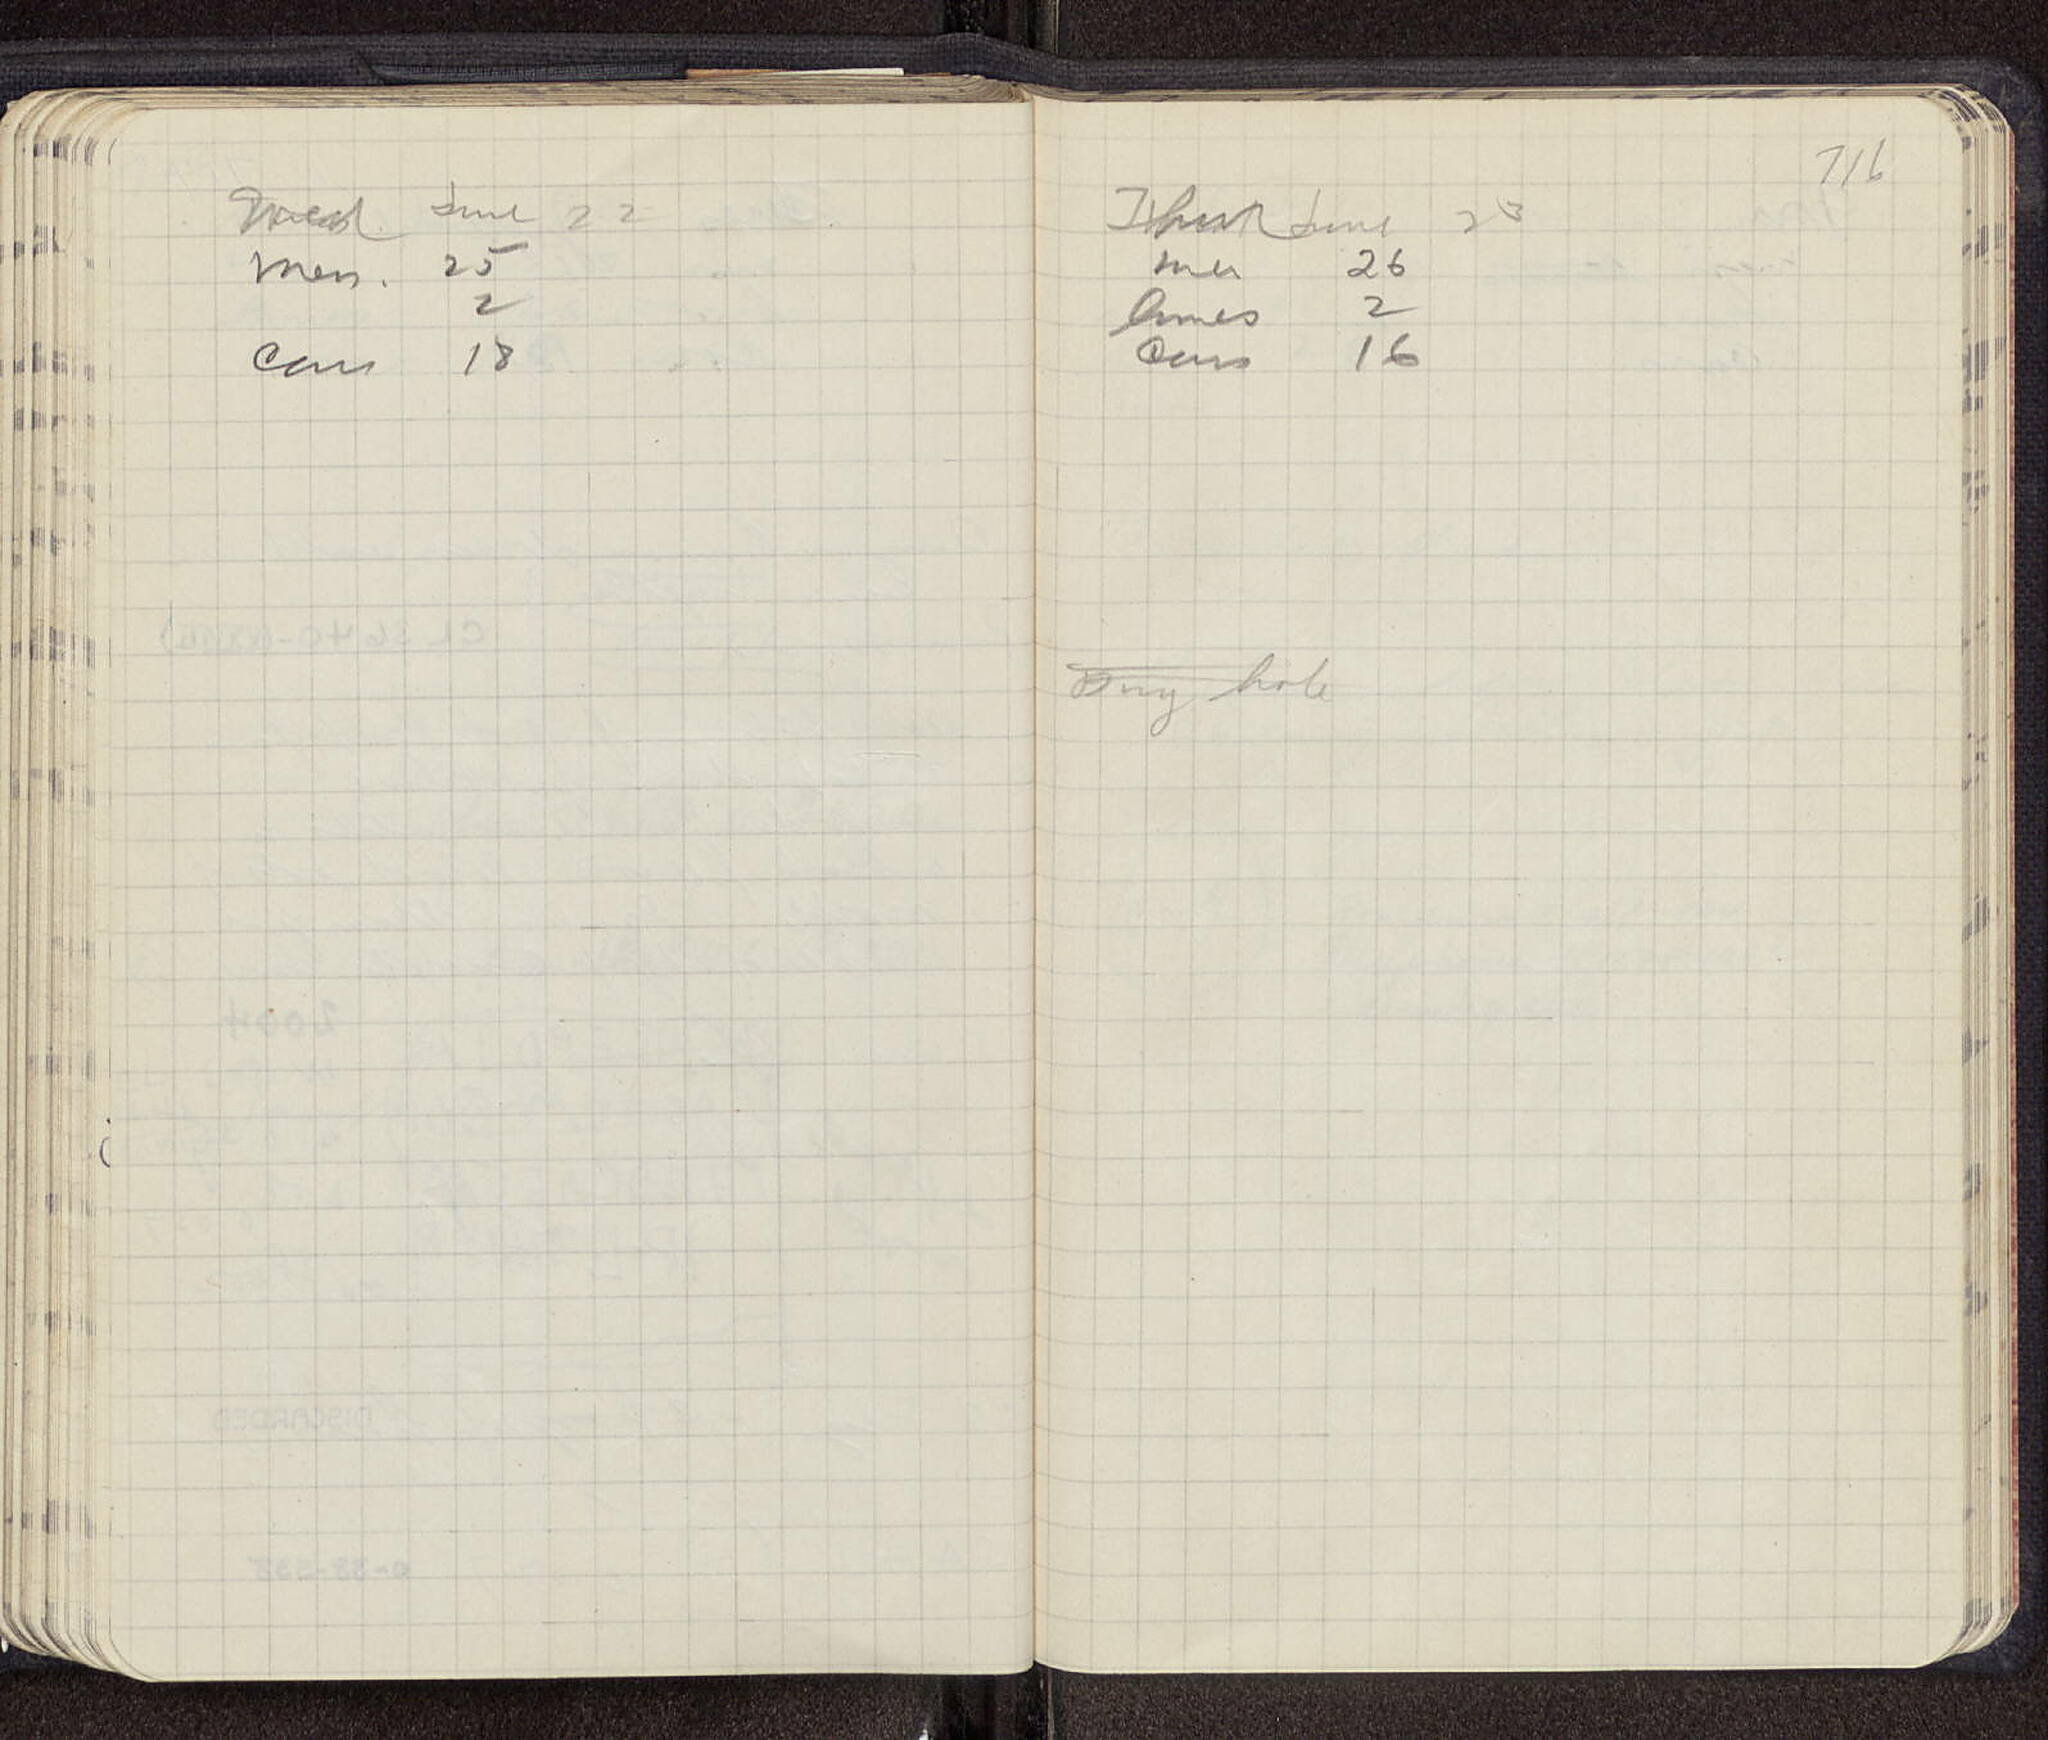 Wed. June 22
Men. 25
2
Cars 18
716
Thurs June 23
Men 26
2
Cars 16
hole